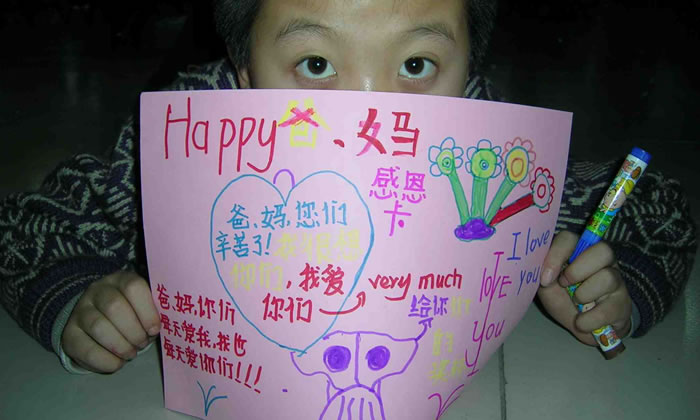 Happy 爸、妈
感恩
卡
爸、妈,您们
辛苦了!我很想
你们,我爱
你们→very much
爸、妈,你们
每天爱我,我也
每天爱你们!!!
给你
I love
you
I love
you